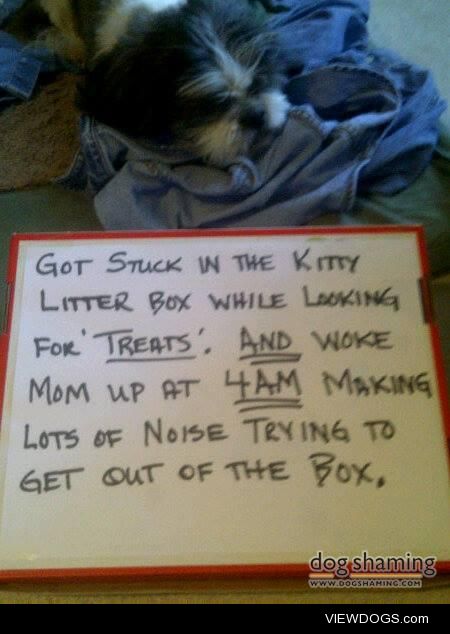 GOT STUCK IN THE KITTY
LITTER BOX WHILE LOOKING
FOR 'TREATS'. AND WOKE
MOM UP AT 4AM MAKING
LOTS OF NOISE TRYING TO
GET OUT OF THE BOX.
dog shaming
WWW.DOGSHAMING.COM
VIEWDOGS.com